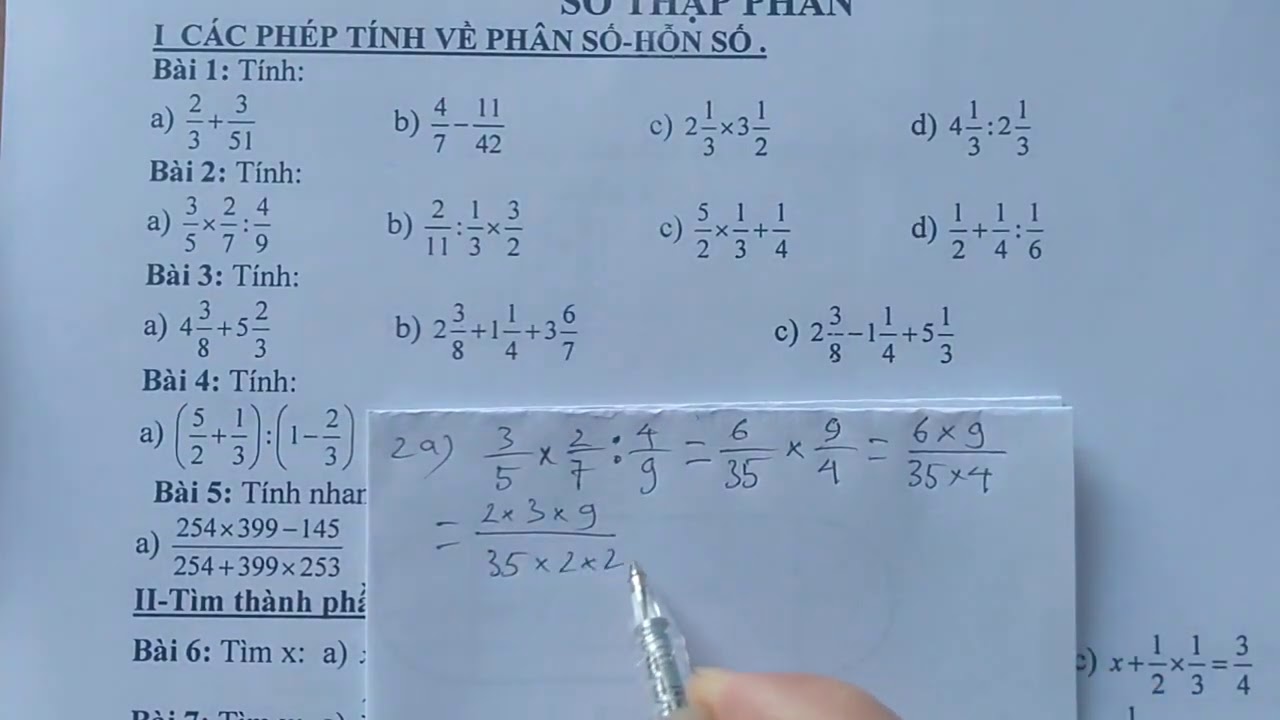 SỐ THẬP PHÂN
I CÁC PHÉP TÍNH VỀ PHÂN SỐ-HỖN SỐ .
Bài 1: Tính:
a) 2/3 + 3/51 b) 4/7 − 11/42 c) 2 1/3 × 3 1/2 d) 4 1/3 : 2 1/3
Bài 2: Tính:
a) 3/5 × 2/7 : 4/9 b) 2/11 : 1/3 × 3/2 c) 5/2 × 1/3 + 1/4 d) 1/2 + 1/4 : 1/6
Bài 3: Tính:
a) 4 3/8 + 5 2/3 b) 2 3/8 + 1 1/4 + 3 6/7 c) 2 3/8 − 1 1/4 + 5 1/3
Bài 4: Tính:
a) (5/2 + 1/3) : (1 − 2/3)
2a) 3/5 × 2/7 : 4/9 = 6/35 × 9/4 = (6 × 9)/(35 × 4)
= (2 × 3 × 9)/(35 × 2 × 2
Bài 5: Tính nhan
a) (254 × 399 − 145)/(254 + 399 × 253)
II-Tìm thành
Bài 6: Tìm x: a) c) x + 1/2 × 1/3 = 3/4